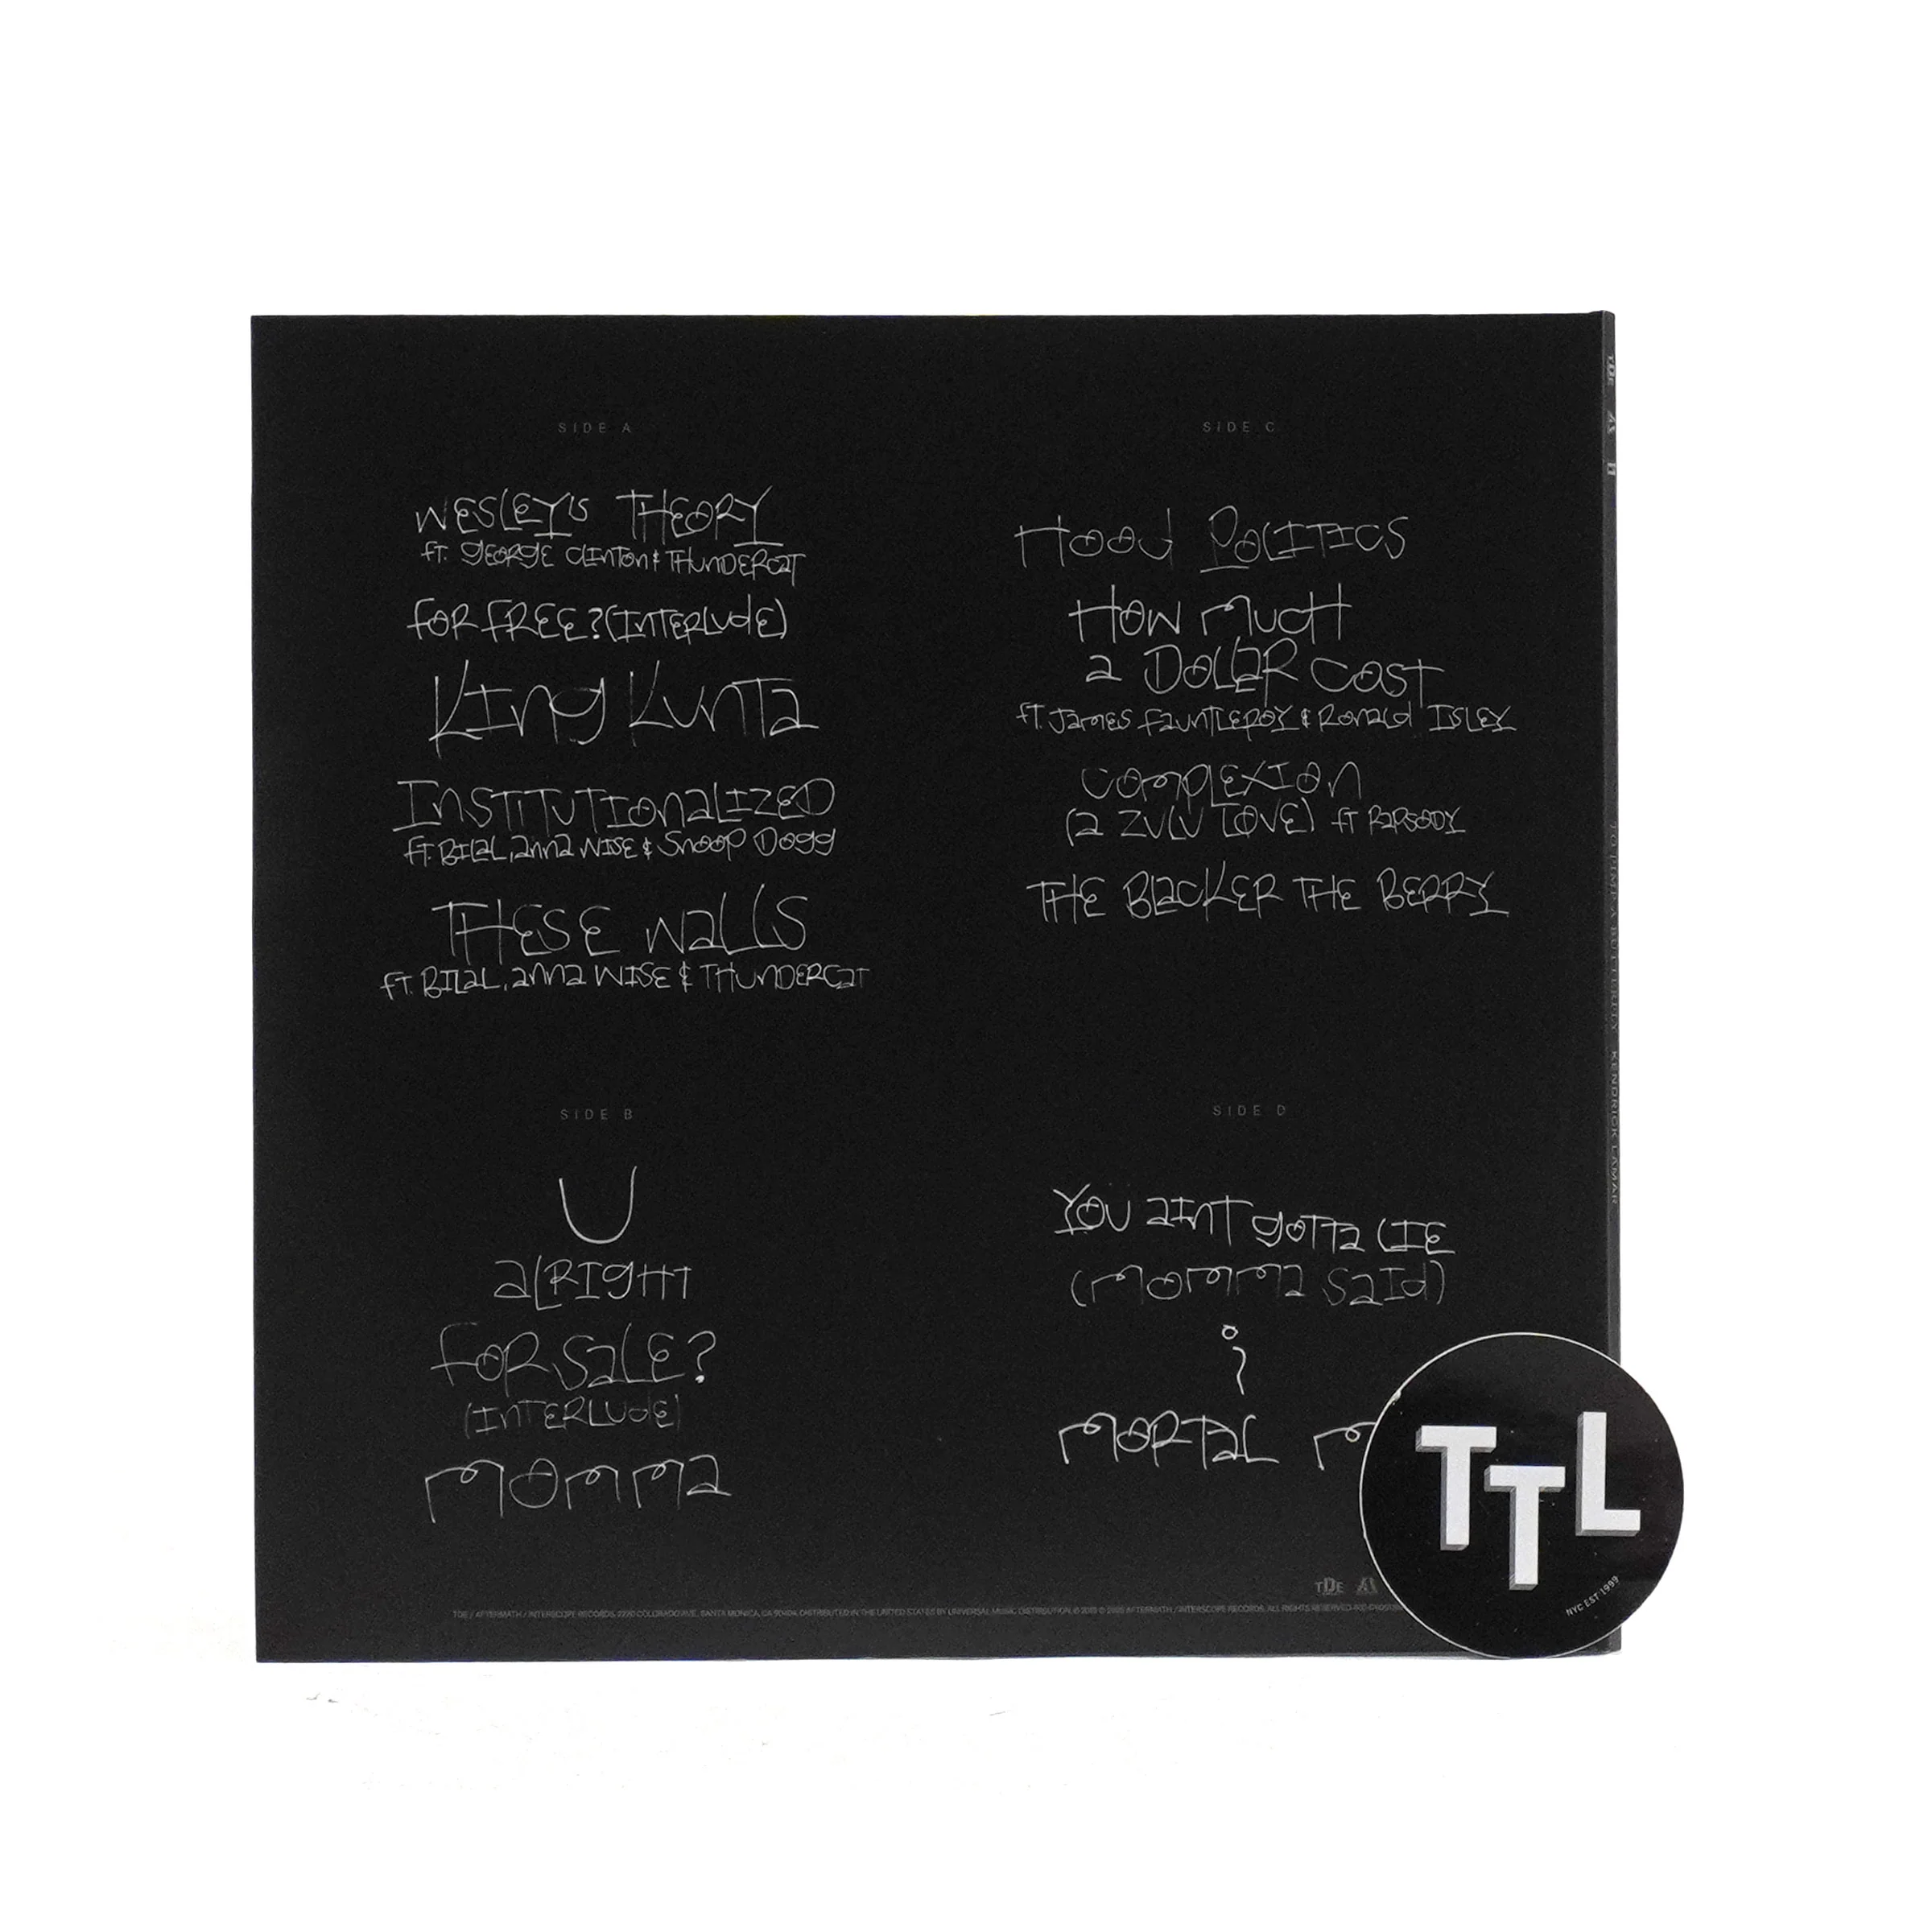 SIDE A
WESLEY'S THEORY
FT. GEORGE CLINTON & THUNDERCAT
FOR FREE? (INTERLUDE)
KING KUNTA
INSTITUTIONALIZED
FT. BILAL, ANNA WISE & SNOOP DOGG
THESE WALLS
FT. BILAL, ANNA WISE & THUNDERCAT
SIDE B
U
ALRIGHT
FOR SALE?
(INTERLUDE)
MOMMA
SIDE C
HOOD POLITICS
HOW MUCH
A DOLLAR COST
FT. JAMES FAUNTLEROY & RONALD ISLEY
COMPLEXION
(A ZULU LOVE) FT RAPSODY
THE BLACKER THE BERRY
SIDE D
YOU AINT GOTTA LIE
(MOMMA SAID)
i
MORTAL M
TDE
TDE / AFTERMATH / INTERSCOPE RECORDS, 2220 COLORADO AVE, SANTA MONICA, CA 90404. DISTRIBUTED IN THE UNITED STATES BY UNIVERSAL MUSIC DISTRIBUTION. AFTERMATH / INTERSCOPE RECORDS. ALL RIGHTS RESERVED.
TDE
TO PIMP A BUTTERFLY KENDRICK LAMAR
TTL
NYC EST 1999